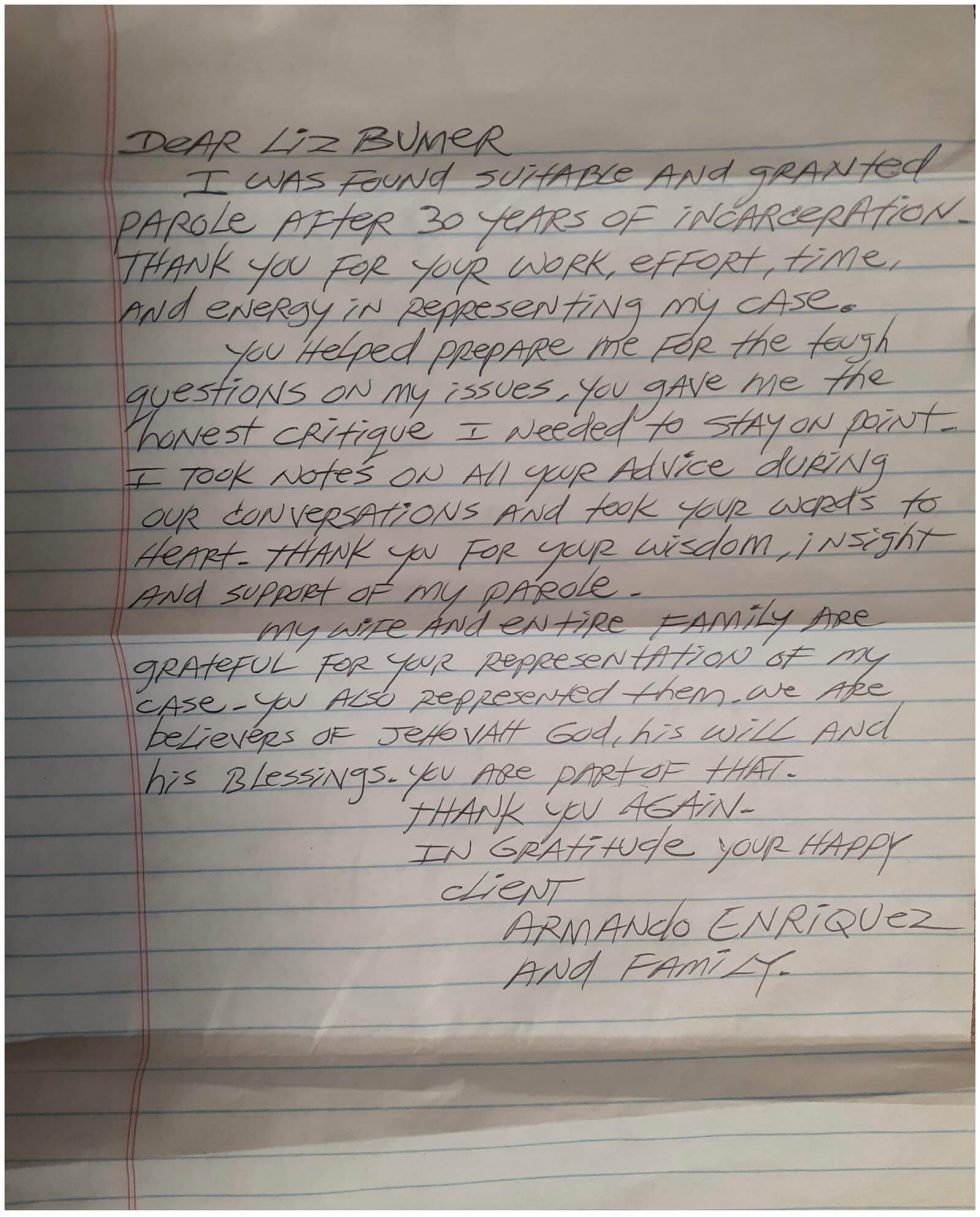 DeAR Liz BUMER
I WAS FOUND SUITABLE AND gRANted
PAROLE AFteR 30 YEARS OF iNCARCeRAtION.
THANK YOU FOR YOUR WORK, eFFORT, tiMe,
ANd eNeRgy iN RepReseNtiNg my CASe.
YOU Helped PRePARe me FOR the tough
questioNs ON my issues, you gAve me the
honest CRitique I Needed to STAY ON poiNt.
I TOOK NoteS ON All youR AdviCe duRiNg
OUR CONVeRSAtioNS AND took youR woRds to
HeARt. tHANK you FOR youR wisdom, iNsight
AND suppoRt OF my pARoLe.
my wiFe AND eNtiRe FAmiLy ARe
gRAteFUL FOR YOUR RepReseNtAtioN OF my
CASe. you ALSO RepResented them. we ARe
beLieveRs OF JeHOVAH God, his wiLL AND
his BLessiNgs. you ARe pARt OF tHAT.
THANK you AGAiN.
IN GRAtitude youR HAPPy
CLieNT
ARMANdo ENRiQUeZ
ANd FAMiLY.